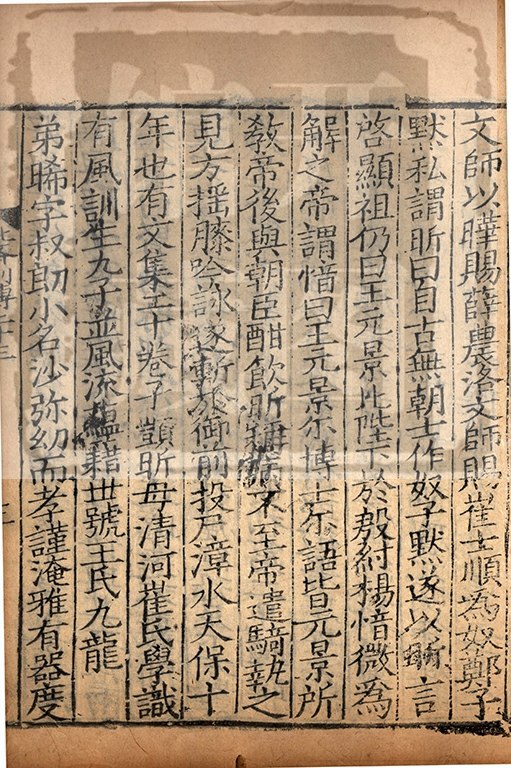 文師以曄賜薛農洛文師賜崔士順為奴鄭子
默私謂昕曰自古無朝士作奴子默遂以昕言
啓顯祖仍曰王元景比陛下於殷紂楊愔微為
解之帝謂愔曰王元景尓博士尓語皆元景所
教帝後與朝臣酣飲昕稱病不至帝遣騎執之
見方揺膝吟詠遂斬於御前投尸漳水天保十
年也有文集二十卷子顗昕母清河崔氏學識
有風訓生九子並風流蘊藉世號王氏九龍
弟晞字叔朗小名沙弥幼而孝謹淹雅有器度